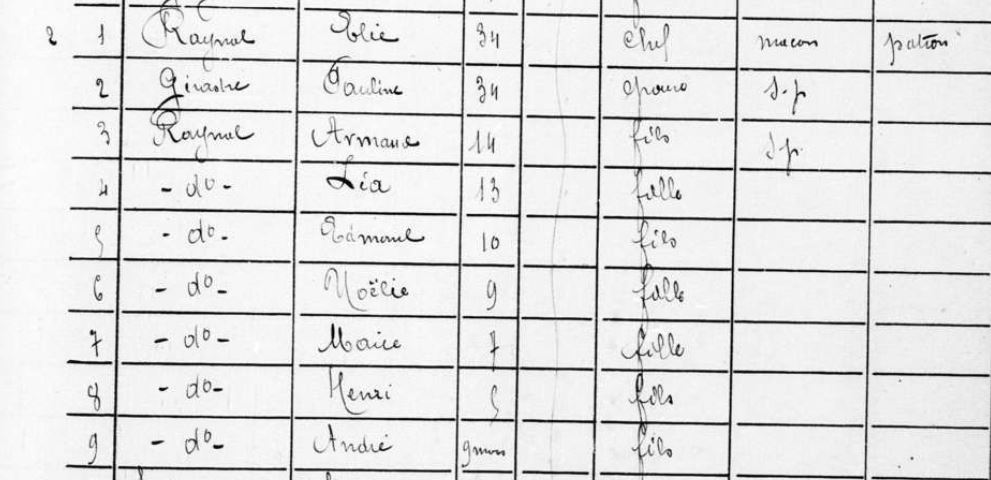 2 1 Raynal Elie 34 chef macon patron
2 Girastre Pauline 34 épouse s.p
3 Raynal Armand 14 fils s p.
4 - do - Léa 13 fille
5 - do - Edmond 10 fils
6 - do - Noëlie 9 fille
7 - do - Marie 7 fille
8 - do - Henri 5 fils
9 - do - André 9 mois fils